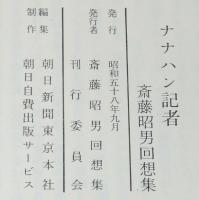 ナナハン記者
斎藤昭男回想集
発行 昭和五十八年九月
発行者 斎藤昭男回想集
刊行委員会
編集 朝日新聞東京本社
制作 朝日自費出版サービス